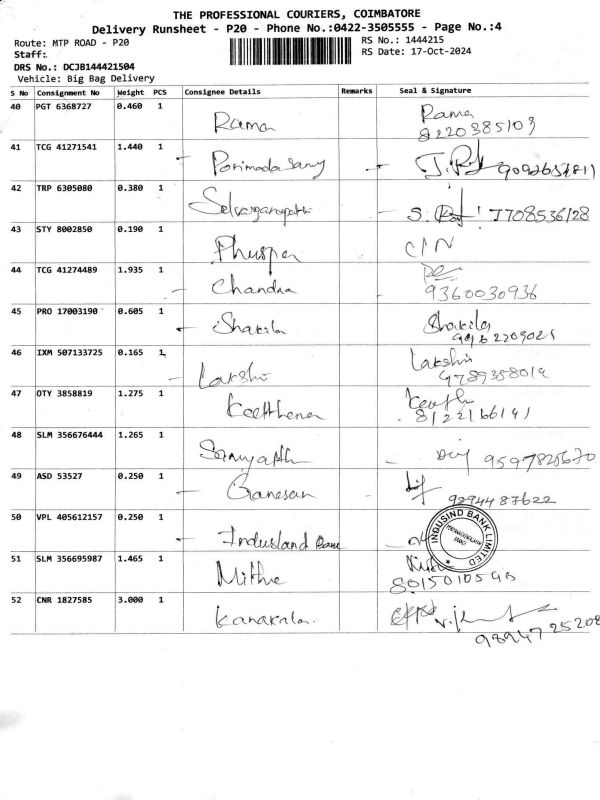 THE PROFESSIONAL COURIERS, COIMBATORE
Delivery Runsheet - P20 - Phone No.:0422-3505555 - Page No.:4
Route: MTP ROAD - P20
RS No.: 1444215
Staff:
RS Date: 17-Oct-2024
DRS No.: DCJB144421504
Vehicle: Big Bag Delivery
S No Consignment No Weight PCS Consignee Details Remarks Seal & Signature
40 PGT 6368727 0.460 1 Rama Rama
8220385103
41 TCG 41271541 1.440 1
42 TRP 6305080 0.380 1 S. 7708536128
43 STY 8002850 0.190 1
44 TCG 41274489 1.935 1 Chandra
9360030936
45 PRO 17003190 0.605 1 Shakila Shakila
46 IXM 507133725 0.165 1 Lakshi Lakshi
9789358019
47 OTY 3858819 1.275 1 Keerthena
8122166141
48 SLM 356676444 1.265 1 9597825670
49 ASD 53527 0.250 1 Ganesan
9294487622
50 VPL 405612157 0.250 1 Indusland Bank INDUSIND BANK LIMITED
51 SLM 356695987 1.465 1 Mithe
52 CNR 1827585 3.000 1 Kanakala
9894725208